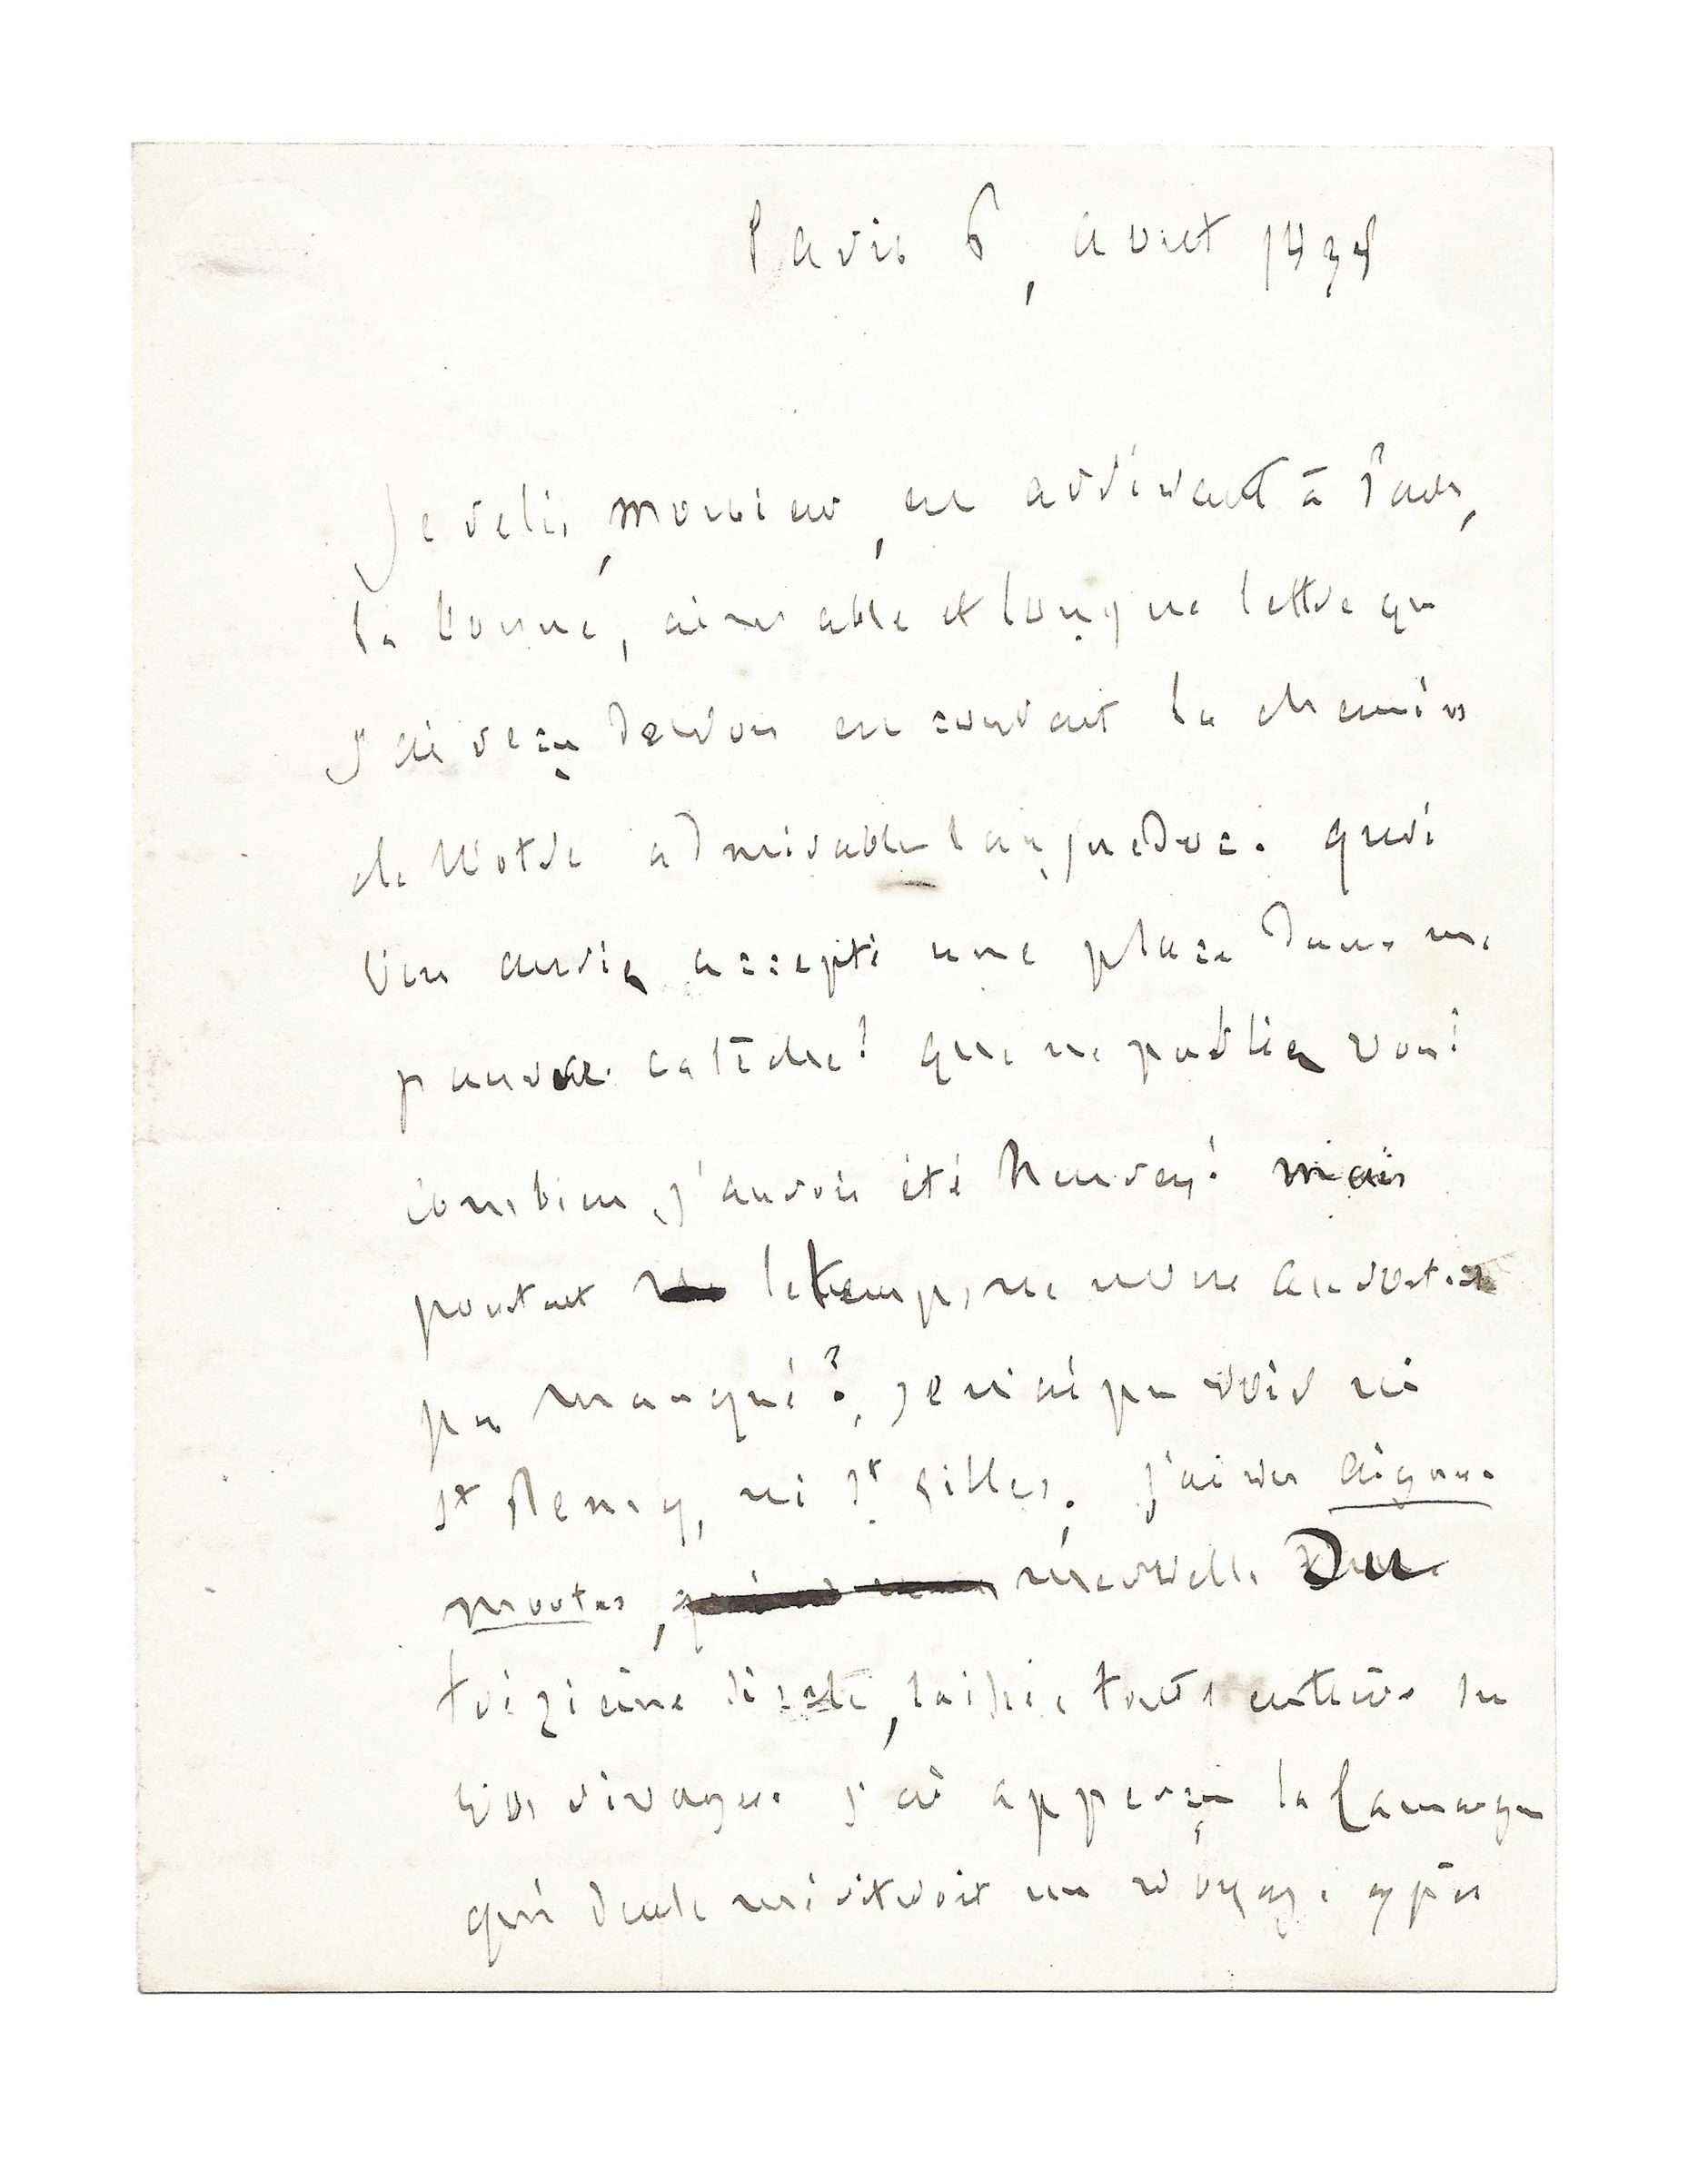 Paris 6, aout 1838
Je relis, monsieur, en arrivant à Paris,
la bonne, aimable et longue lettre que
j'ai reçu de vous en courant les chemins
de votre admirable Languedoc. que n'
aviez accepté une place dans ma
pauvre calèche! que ne parliez vous!
combien j'aurois été heureux! mais
pourtant le temps ne nous auroit il
pas manqué?, je n'ai pu voir ni
St Remy, ni St Gilles. j'ai vu aigues
mortes, merveille du
treizieme siecle, laissée toute entière sur
vos rivages. j'ai apperçu la Camargue
qui seule mériteroit un voyage exprès